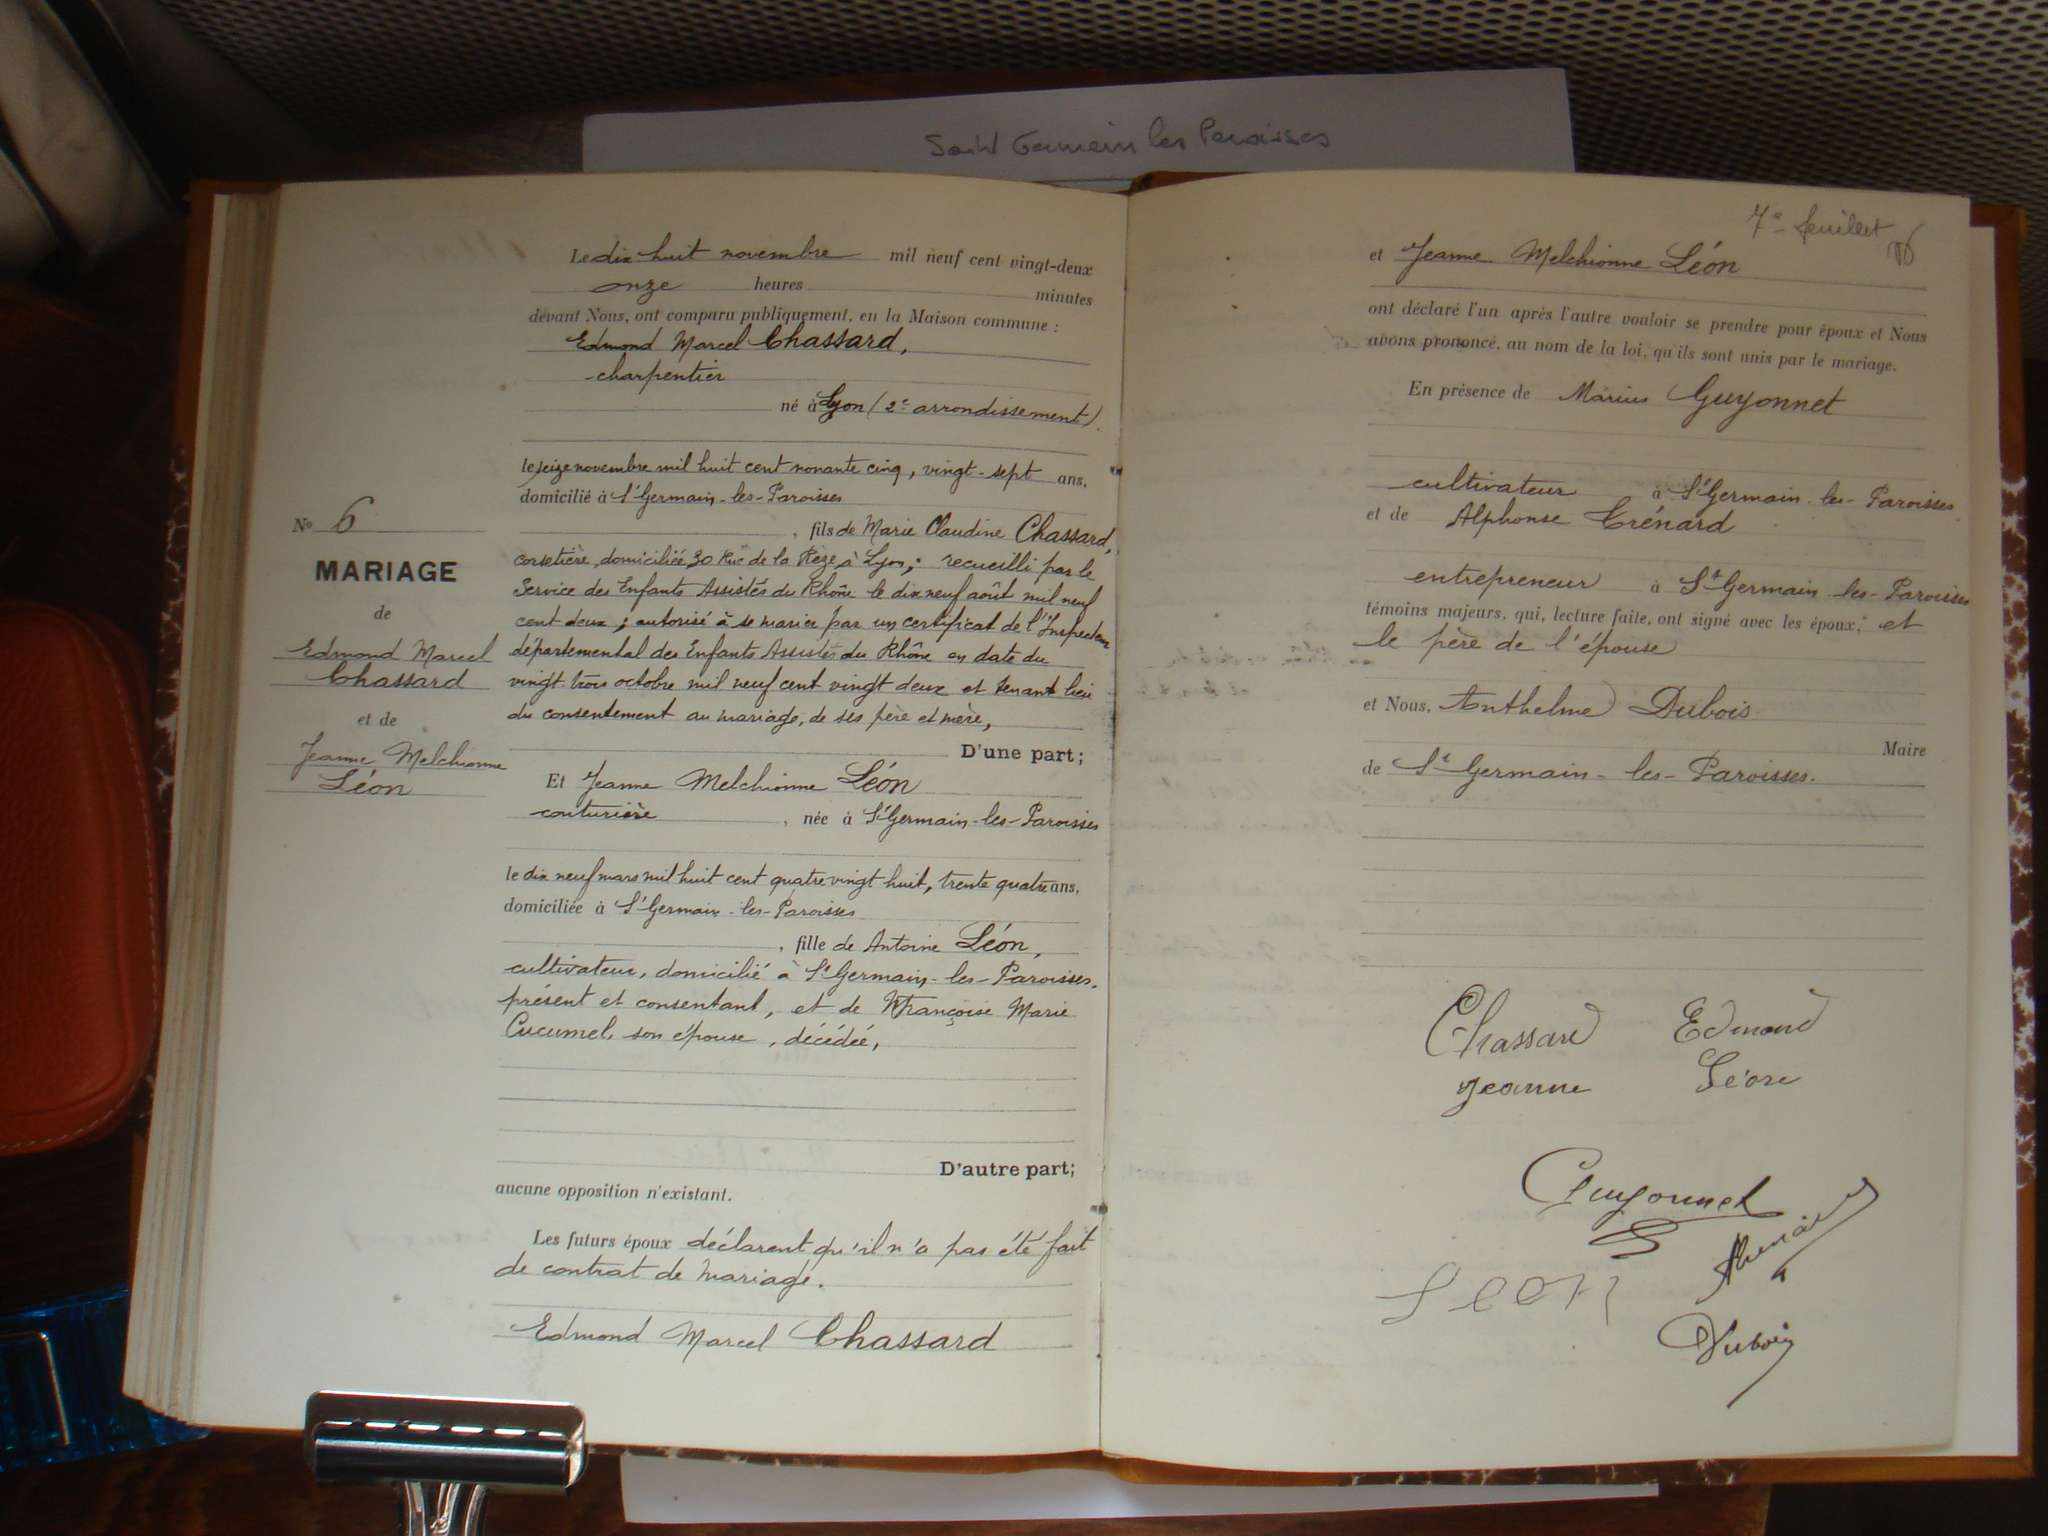 Saint Germain les Paroisses
Le dix huit novembre mil neuf cent vingt-deux
onze heures minutes
devant Nous, ont comparu publiquement, en la Maison commune :
Edmond Marcel Chassard,
charpentier
né à Lyon (2e arrondissement).
le seize novembre mil huit cent nonante cinq, vingt-sept ans,
domicilié à St Germain-les-Paroisses
, fils de Marie Claudine Chassard,
corsetière, domiciliée 30 Rue de la Rèze à Lyon; recueilli par le
Service des Enfants Assistés du Rhône le dix neuf août mil neuf
cent deux; autorisé à se marier par un certificat de l'Inspecteur
départemental des Enfants Assistés du Rhône en date du
vingt trois octobre mil neuf cent vingt deux et tenant lieu
du consentement au mariage, de ses père et mère,
D'une part;
Et Jeanne Melchionne Léon
couturière , née à St Germain-les-Paroisses
le dix neuf mars mil huit cent quatre vingt huit, trente quatre ans,
domiciliée à St Germain-les-Paroisses
, fille de Antoine Léon,
cultivateur, domicilié à St Germain-les-Paroisses,
présent et consentant, et de Françoise Marie
Cucumel, son épouse, décédée,
D'autre part;
aucune opposition n'existant.
Les futurs époux déclarent qu'il n'a pas été fait
de contrat de mariage.
Edmond Marcel Chassard
No 6
MARIAGE
de
Edmond Marcel
Chassard
et de
Jeanne Melchionne
Léon
7e feuillet
et Jeanne Melchionne Léon
ont déclaré l'un après l'autre vouloir se prendre pour époux et Nous
avons prononcé, au nom de la loi, qu'ils sont unis par le mariage.
En présence de Marius Guyonnet
cultivateur à St Germain-les-Paroisses
et de Alphonse Trénard
entrepreneur à St Germain-les-Paroisses
témoins majeurs, qui, lecture faite, ont signé avec les époux, et
le père de l'épouse
et Nous, Anthelme Dubois
Maire
de St Germain-les-Paroisses.
Chassard Edmond
Jeanne Léon
Guyonnet
Léon
Dubois